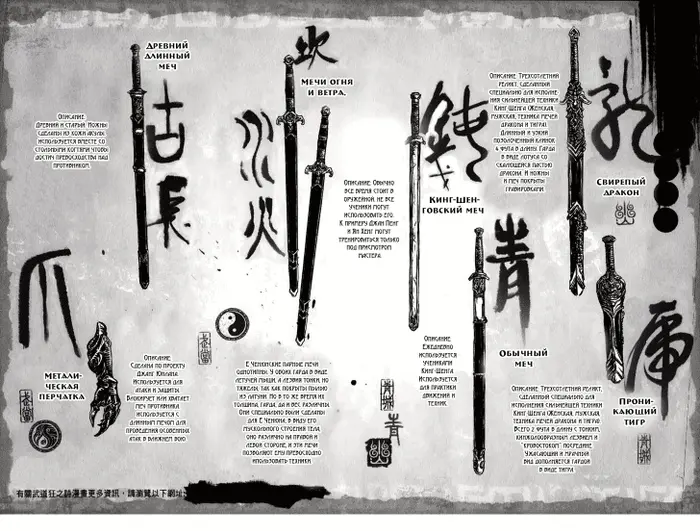 ДРЕВНИЙ
ДЛИННЫЙ
МЕЧ
古
長
Описание
Древний и старый. Ножны
сделаны из кожи акулы.
Используется вместе со
стольными когтями чтобы
достич превосходства над
противником.
МЕЧИ ОГНЯ
И ВЕТРА.
火
Описание Обычно
все время стоит в
оружейной. Не все
ученики могут
использовать его.
К примеру Джан Пенг
и Ян Хенг могут
тренироваться только
под присмотром
мастера.
КИНГ-ШЕН-
ГОВСКИЙ МЕЧ
Описание Трехсотлетний
реликт, сделанный
специально для исполне-
ния сильнейшей техники
Кинг Шенга (Женская,
мужская, техника мечей
дракона и тигра)
Длинный и узкий
позолоченный клинок
4 фута в длину. Гарда
в виде лотуса со
скалющейся пастью
дракона. И ножны
и меч покрыты
гравировками.
龍
СВИРЕПЫЙ
ДРАКОН
爪
МЕТАЛИ-
ЧЕСКАЯ
ПЕРЧАТКА
Описание
Сделана по проекту
Джанг Юншуа.
Используется для
атаки и защиты.
Блокирует или хватает
меч противника
Используется с
длинным мечом для
проведения особенных
атак в ближнем бою
Е Ченюнские парные мечи
однотипны. У обоих гарда в виде
летучей мыши, а лезвия тонки, но
тяжелы, так как покрыты пылью
из латуни. Но в то же время их
толщина, гарда, да и вес различны.
Они специально были сделаны
для Е Ченюна, в виду его
мускульного строения тела,
оно различно на правой и
левой стороне, и эти мечи
позволяют ему превосходно
использовать техники
Описание
Ежедневно
используется
учениками
Кинг Шенга
Используется
для практики
движения и
техник
青
ОБЫЧНЫЙ
МЕЧ
青
Описание Трехсотлетний реликт,
сделанный специально для
исполнения сильнейшей техники
Кинг Шенга (Женская, мужская,
техника мечей дракона и тигра)
Всего 2 фута в длину с тонким,
кинжалообразным лезвием и
"кровостоком" посредине.
Ужасающий и мрачный
вид дополняется гардой
в виде тигра
虎
ПРОНИ-
КАЮЩИЙ
ТИГР
有關武道狂之詩漫畫更多資訊，請瀏覽以下網址